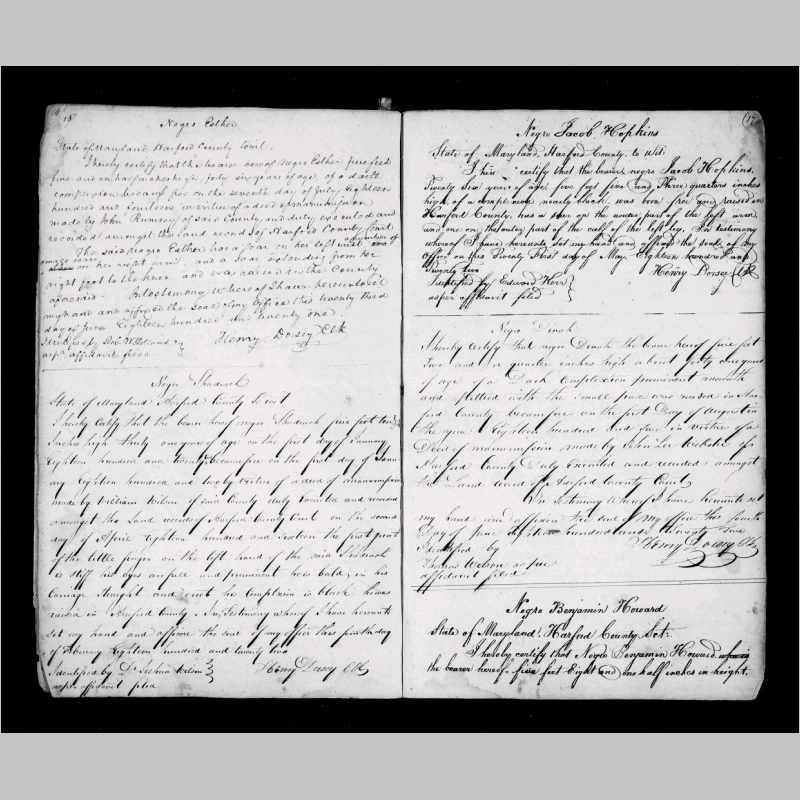 15
Negro Esther
State of Maryland Harford County to wit.
I hereby certify that the bearer hereof negro Esther five feet
five and an half inches high, forty six years of age of a dark
complexion became free on the seventh day of July Eighteen
hundred and in virtue of a deed of manumission
made by John Rumsey of said County and duly executed and
recorded amongst the Land records of Harford County Court.
The said negro Esther has a scar on her left
on her right arm and a scar extending from her
right foot to the knee and was raised in the County
aforesaid. In testimony whereof I have hereunto set
my hand and affixed the seal of my office this twenty third
day of June Eighteen hundred and twenty one.
Identified by W.
as pr affidavit filed
Henry Dorsey Clk
Negro Shadrach
State of Maryland Harford County to wit
I hereby Certify that the bearer hereof negro Shadrach five feet
Inches high thirty one years of age on the first day of January
Eighteen hundred and twenty became free on the first day of Janu
ary Eighteen hundred and two by virtue of a deed of manumission
made by William Wilson of said County duly executed and recorded
amongst the Land records of Harford County Court on the second
day of April Eighteen hundred and sixteen the first joint
of the little finger on the left hand of the said Shadrach
is stiff his eyes are full and prominent he is bald, in his
Carriage straight and erect his Complexion is black he was
raised in Harford County. In Testimony whereof I have hereunto
set my hand and affixed the seal of my office this day
of Eighteen hundred and twenty two
Identified by Dr. Joshua Wilson
as per affidavit filed
Henry Dorsey Clk
(17
Negro Jacob Hopkins
State of Maryland, Harford County to wit.
I certify that the bearer, negro Jacob Hopkins,
Twenty six years of age, five feet five and Three quarters inches
high, of a complexion nearly black, was born free and raised in
Harford County, has a scar on the under part of the left arm
and one on the outer part of the calf of the left leg. In testimony
whereof I have hereunto set my hand and affixed the seal of my
Office on this Twenty first day of May Eighteen hundred and
Twenty two
Henry Dorsey Clk
Identified by Edward
as per affidavit filed
Negro Dinah
I hereby Certify that negro Dinah the bearer hereof five feet
Two and a quarter inches high about forty one years
of age of a Dark Complexion prominent mouth
and pitted with the small pox was raised in Har
ford County became free on the first Day of August in
the year Eighteen hundred and five in virtue of a
Deed of manumission made by John Lee Webster of
Harford County Duly executed and recorded amongst
the Land records of Harford County Court
In Testimony whereof I have hereunto set
my hand and affixed the seal of my office this fourth
Day of June Eighteen hundred and twenty two
Identified by
Henry Dorsey Clk
Thomas Wilson as per
affidavit filed
Negro Benjamin Howard
State of Maryland, Harford County Sct.
I hereby certify that Negro Benjamin Howard
the bearer hereof five feet Eight and one half inches in height,